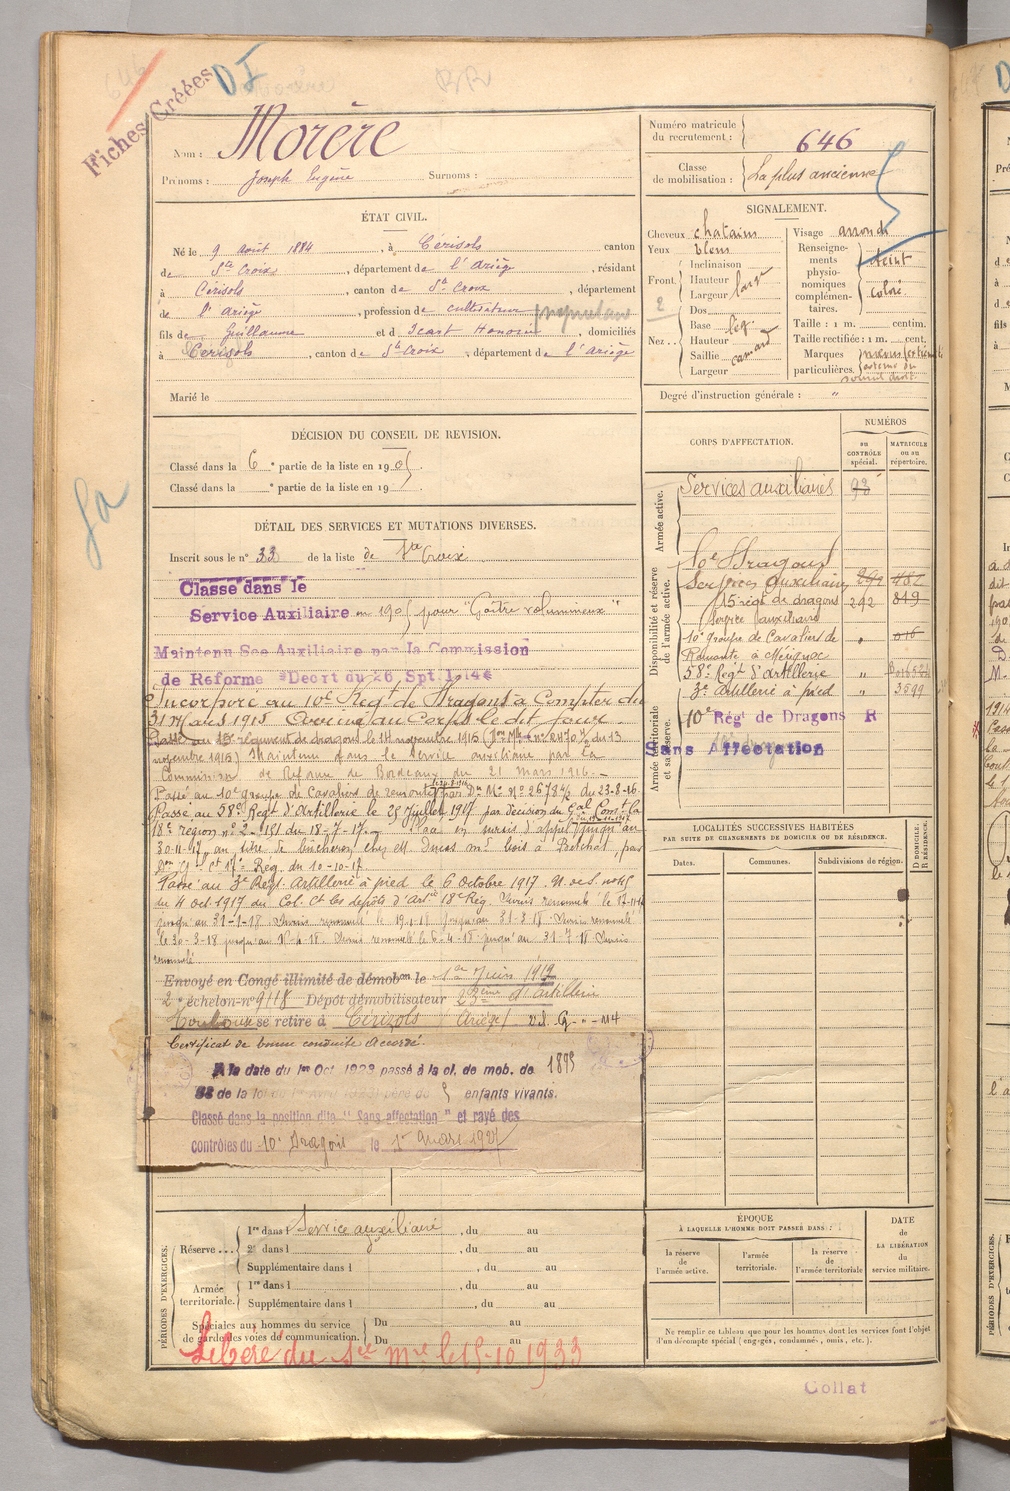 646
Fiches Créées
DI
Nom : Morère
Prénoms : Joseph Eugène Surnoms :
Numéro matricule du recrutement : 646
Classe de mobilisation : La plus ancienne
ÉTAT CIVIL.
Né le 9 août 1884, à Cérisols canton
de Ste Croix, département de l'Ariège, résidant
à Cerisols, canton de Ste Croix, département
de l'ariège, profession de cultivateur propriétaire
fils de Guillaume et d Icart Honorine, domiciliés
à Cerizols, canton de Ste Croix, département de l'ariège
Marié le
SIGNALEMENT.
Cheveux chatains
Yeux bleus
Front. Inclinaison
Hauteur
Largeur large
2
Nez. Dos
Base lég.
Hauteur
Saillie camard
Largeur
Visage arrondi
Renseignements physionomiques complémentaires. teint coloré
Taille : 1 m. centim.
Taille rectifiée : 1 m. cent.
Marques particulières.
sourcil droit
Degré d'instruction générale : "
DÉCISION DU CONSEIL DE REVISION.
Classé dans la 6e partie de la liste en 1905.
Classé dans la e partie de la liste en 19
DÉTAIL DES SERVICES ET MUTATIONS DIVERSES.
Inscrit sous le n° 33 de la liste de Ste Croix
Classé dans le
Service Auxiliaire en 1905 pour "Goitre volumineux"
Maintenu Sce Auxiliaire par la Commission
de Reforme Décrt du 26 Spt. 1914
Incorporé au 10e Rég. de Dragons à Compter du
31 Mars 1915 Arrivé au Corps le dit jour
Passé au 15e régiment de dragons le 14 novembre 1915 du 13
novembre 1915) Maintenu dans le service auxiliaire par la
Commission de Réforme de Bordeaux du 21 mars 1916.
Passé au 10e groupe de Cavaliers de remonte par Dn Mle n° 26784/2 du 23-8-16
Passé au 58e Regt d'Artillerie le 25 Juillet 1917 par décision du Gal Comt la
18e région n° 2-151 du 18-7-17. en sursis d'appel jusqu'au
30-11-17 au titre de bucheron chez M. bois à par
Rég. du 10-10-17.
Passé au 3e Regt Artillerie à pied le 6 Octobre 1917. N. de S. n°
du 4 Oct 1917 du Col. Ct les dépôts d'Artie 18e Rég. Sursis renouvelé le
jusqu'au 31-1-18. Sursis renouvelé le 19-1-18 jusqu'au 31-3-18. Sursis renouvelé
le 30-3-18 jusqu'au Sursis renouvelé le 6-4-18 jusqu'au 31-7-18 Sursis
renouvelé.
Envoyé en Congé illimité de démobon le 1er Juin 1919
2e échelon n° 9118 Dépôt démobilisateur 23ème d'artillerie
Toulouse se retire à Cerizols Ariège
Certificat de bonne conduite Accordé.
A la date du 1er Oct. 1923 passé à la cl. de mob. de 1893
58 de la loi du 1er Avril 1923 père de 5 enfants vivants.
Classé dans la position dite "Sans affectation" et rayé des
contrôles du 10e Dragons le 1er Mars 1927
CORPS D'AFFECTATION.
NUMÉROS
au CONTRÔLE spécial.
MATRICULE ou au répertoire.
Armée active.
Services auxiliaires 93
Disponibilité et réserve de l'armée active.
10e Dragons
Services Auxiliaires 291 482
15e régt de dragons 292 819
Service auxiliaire
10e groupe de Cavaliers de " 016
Remonte à Mérignac
58e Régt d'Artillerie "
3e Artillerie à pied " 3599
Armée territoriale et sa réserve.
10e Régt de Dragons R
Sans Affectation
LOCALITÉS SUCCESSIVES HABITÉES
PAR SUITE DE CHANGEMENTS DE DOMICILE OU DE RÉSIDENCE.
Dates. Communes. Subdivisions de région.
D DOMICILE. R RÉSIDENCE.
PÉRIODES D'EXERCICES.
Réserve... 1re dans l Service auxiliaire, du au
2e dans l, du au
Supplémentaire dans l, du au
Armée territoriale. 1re dans l, du au
Supplémentaire dans l, du au
Spéciales aux hommes du service de garde des voies de communication. Du au
Du au
Libéré du Sce Mre le 15-10-1933
ÉPOQUE
À LAQUELLE L'HOMME DOIT PASSER DANS :
la réserve de l'armée active.
l'armée territoriale.
la réserve de l'armée territoriale
DATE de LA LIBÉRATION du service militaire.
Ne remplir ce tableau que pour les hommes dont les services font l'objet
d'un décompte spécial (engagés, condamnés, omis, etc.).
Collat